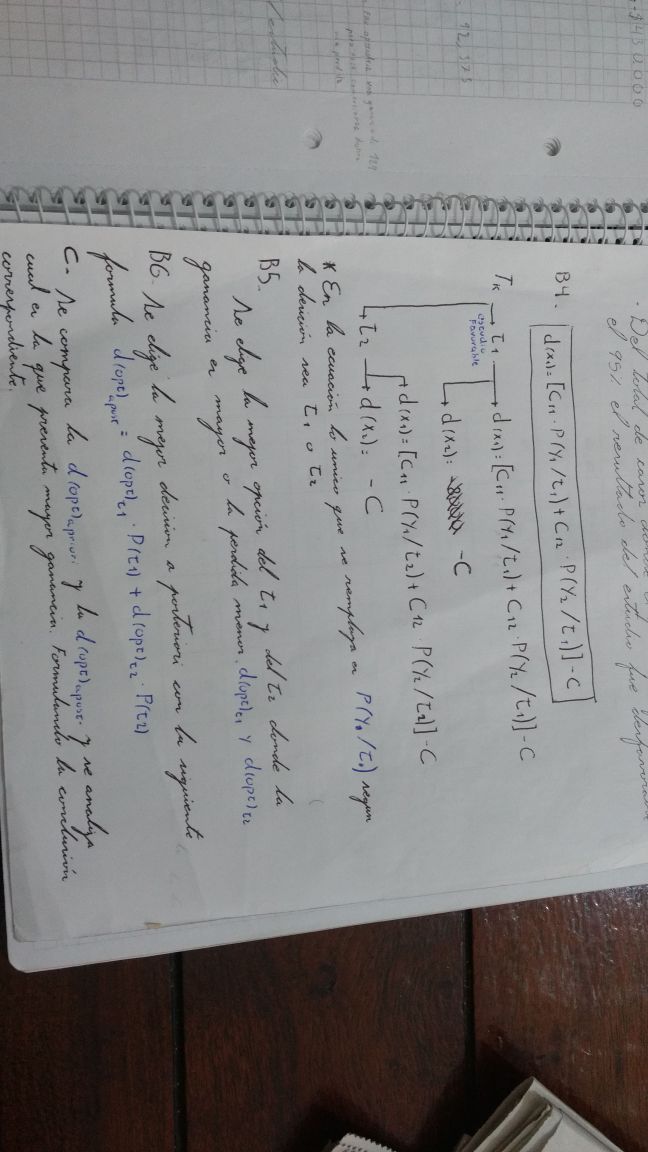 -$450.000
· Del total de casos donde
el 95% el resultado del estudio fue desfavorable
B4. d(x₁)= [C₁₁ · P(Y₁/τ₁) + C₁₂ · P(Y₂/τ₁)] - C
Tₖ → τ₁ → d(x₁): [C₁₁ · P(Y₁/τ₁) + C₁₂ · P(Y₂/τ₁)] - C
estudio
Favorable
→ d(x₂): -C
→ d(x₁)= [C₁₁ · P(Y₁/τ₂) + C₁₂ · P(Y₂/τ₂)] - C
→ τ₂ → d(x₂): - C
* En la ecuación lo unico que se remplaza es P(Y₀/τ₀) segun
la decisión sea τ₁ o τ₂
B5.
Se elige la mejor opción del τ₁ y del τ₂ donde la
ganancia es mayor o la perdida menor. d(opt)τ₁ y d(opt)τ₂
B6. Se elige la mejor decision a posteriori con la siguiente
formula d(opt)apost = d(opt)τ₁ · P(τ₁) + d(opt)τ₂ · P(τ₂)
C. Se compara la d(opt)apriori y la d(opt)apost. y se analiza
cual es la que presenta mayor ganancia. Formulando la conclusión
correspondiente.
92,375
/estudio